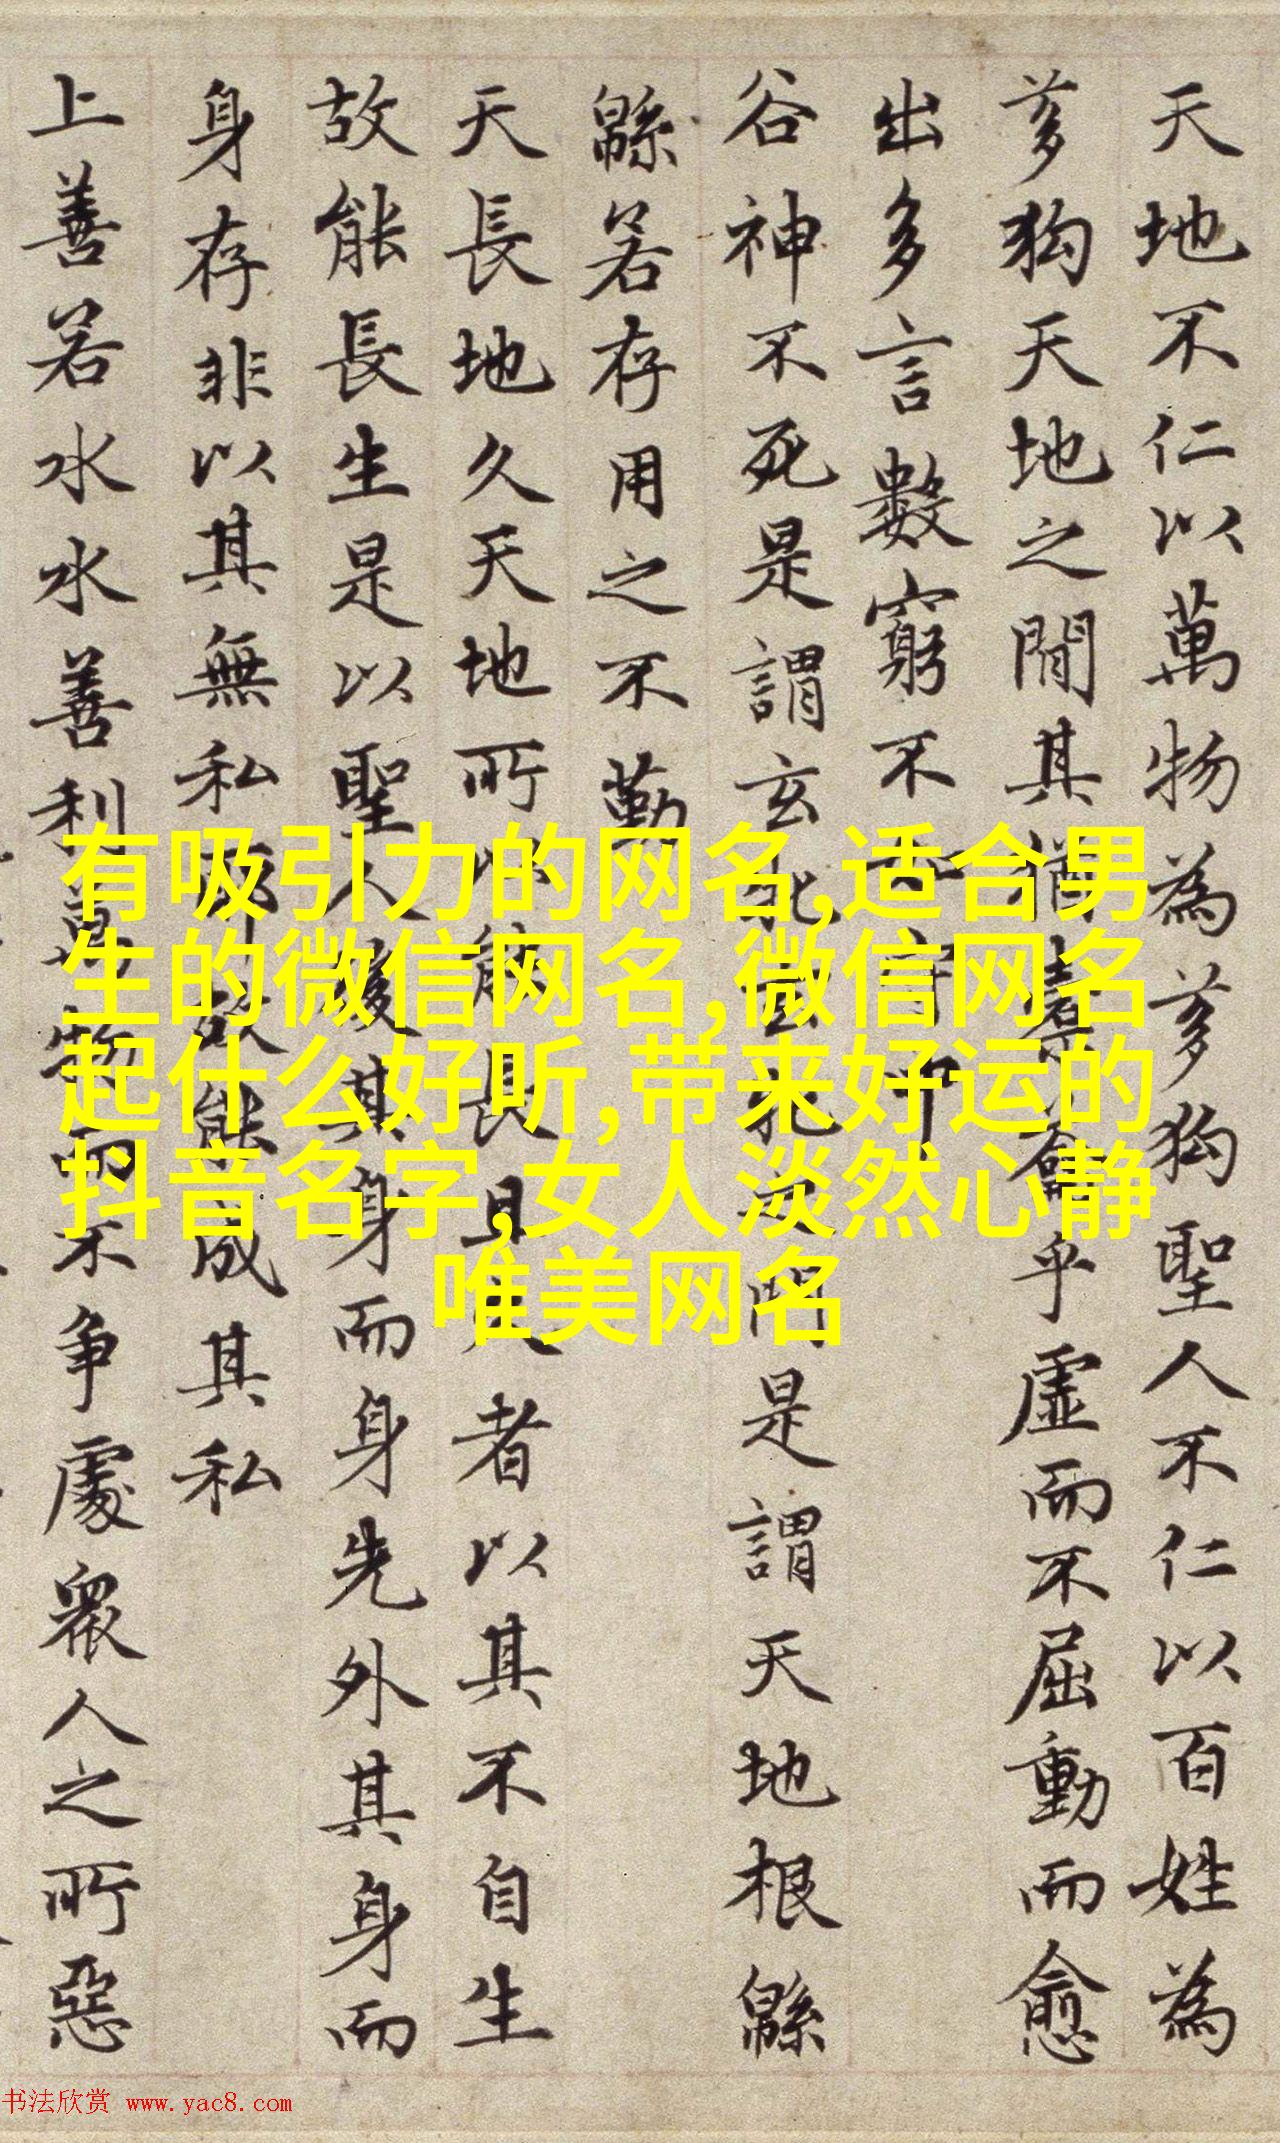 天地不仁以萬物為芻狗聖人不仁以百姓為
芻狗天地之間其猶橐籥乎虛而不屈動而愈
出多言數窮不如守中
谷神不死是謂玄牝玄牝之門是謂天地根緜
緜若存用之不勤
天長地久天地所以能長且久者以其不自生
故能長生是以聖人後其身而身先外其身而
身存非以其無私耶故能成其私
上善若水水善利萬物而不爭處衆人之所惡
有吸引力的网名,适合男
生的微信网名,微信网名
起什么好听,带来好运的
抖音名字,女人淡然心静
唯美网名
书法欣赏 www.yac8.com